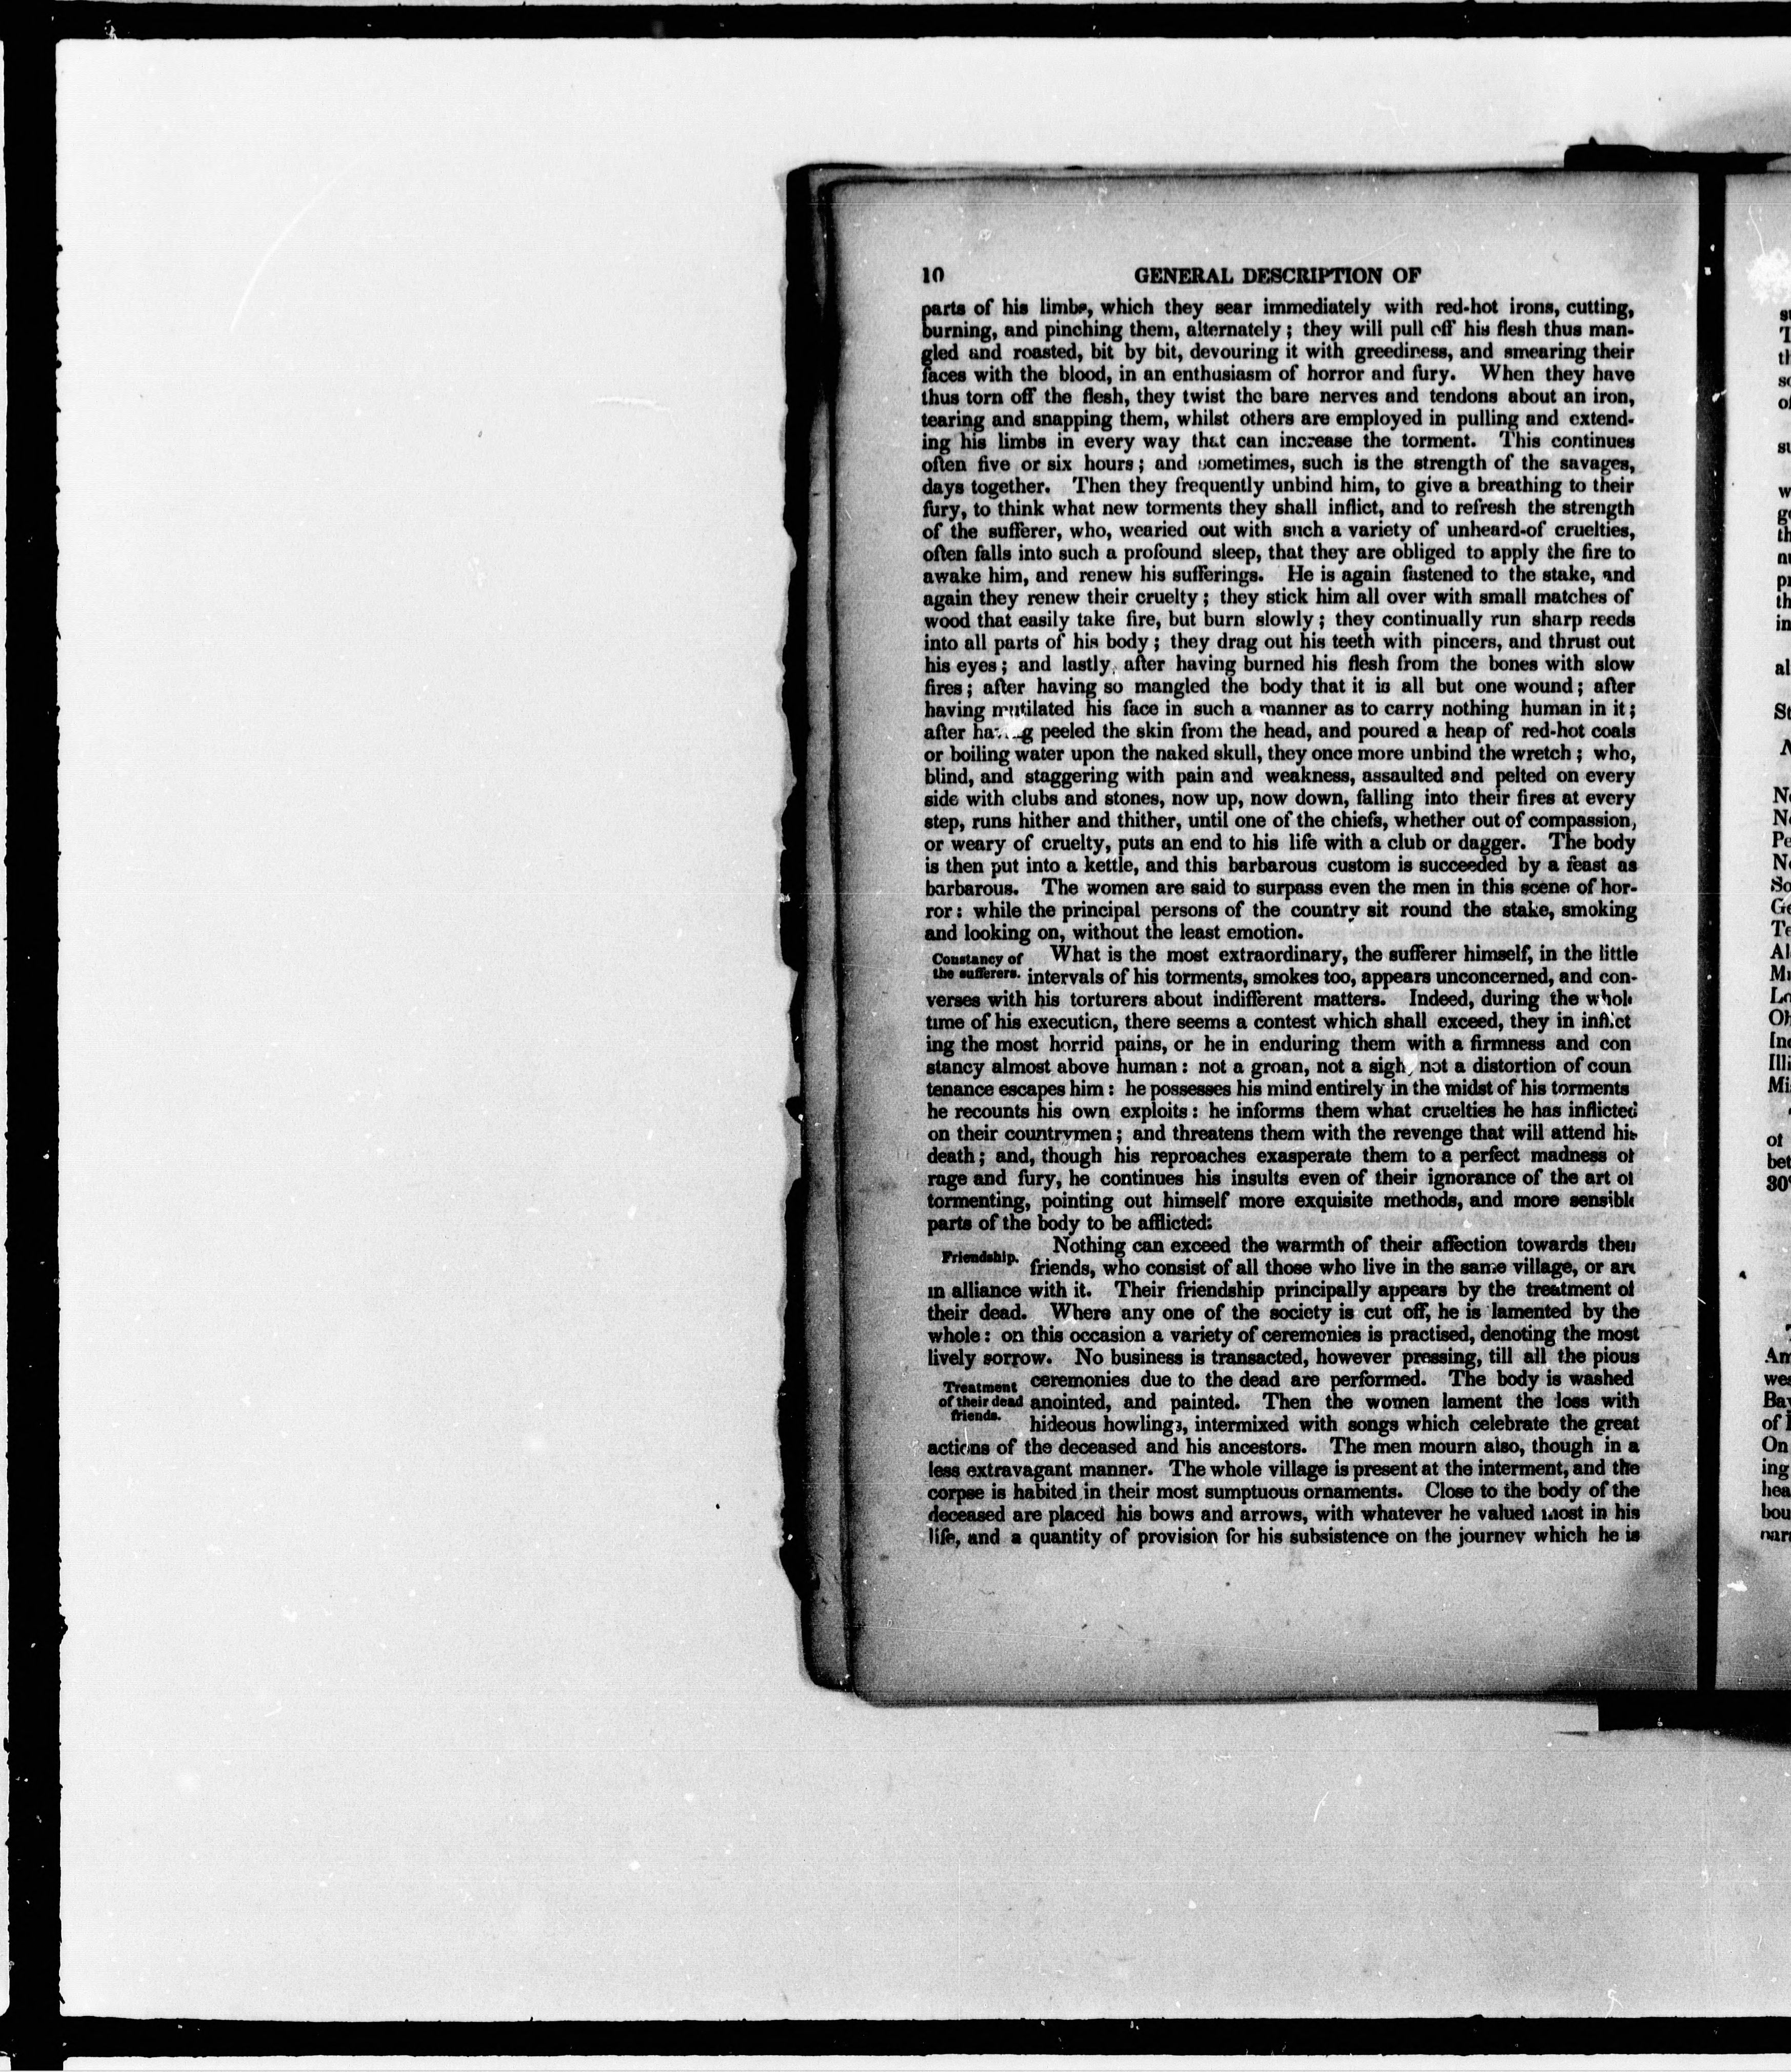 10 GENERAL DESCRIPTION OF
parts of his limbs, which they sear immediately with red-hot irons, cutting,
burning, and pinching them, alternately; they will pull off his flesh thus man-
gled and roasted, bit by bit, devouring it with greediness, and smearing their
faces with the blood, in an enthusiasm of horror and fury. When they have
thus torn off the flesh, they twist the bare nerves and tendons about an iron,
tearing and snapping them, whilst others are employed in pulling and extend-
ing his limbs in every way that can increase the torment. This continues
often five or six hours; and sometimes, such is the strength of the savages,
days together. Then they frequently unbind him, to give a breathing to their
fury, to think what new torments they shall inflict, and to refresh the strength
of the sufferer, who, wearied out with such a variety of unheard-of cruelties,
often falls into such a profound sleep, that they are obliged to apply the fire to
awake him, and renew his sufferings. He is again fastened to the stake, and
again they renew their cruelty; they stick him all over with small matches of
wood that easily take fire, but burn slowly; they continually run sharp reeds
into all parts of his body; they drag out his teeth with pincers, and thrust out
his eyes; and lastly, after having burned his flesh from the bones with slow
fires; after having so mangled the body that it is all but one wound; after
having mutilated his face in such a manner as to carry nothing human in it;
after having peeled the skin from the head, and poured a heap of red-hot coals
or boiling water upon the naked skull, they once more unbind the wretch; who,
blind, and staggering with pain and weakness, assaulted and pelted on every
side with clubs and stones, now up, now down, falling into their fires at every
step, runs hither and thither, until one of the chiefs, whether out of compassion,
or weary of cruelty, puts an end to his life with a club or dagger. The body
is then put into a kettle, and this barbarous custom is succeeded by a feast as
barbarous. The women are said to surpass even the men in this scene of hor-
ror: while the principal persons of the country sit round the stake, smoking
and looking on, without the least emotion.
Constancy of
the sufferers.
What is the most extraordinary, the sufferer himself, in the little
intervals of his torments, smokes too, appears unconcerned, and con-
verses with his torturers about indifferent matters. Indeed, during the whole
time of his execution, there seems a contest which shall exceed, they in inflict
ing the most horrid pains, or he in enduring them with a firmness and con
stancy almost above human: not a groan, not a sigh, not a distortion of coun
tenance escapes him: he possesses his mind entirely in the midst of his torments
he recounts his own exploits: he informs them what cruelties he has inflicted
on their countrymen; and threatens them with the revenge that will attend his
death; and, though his reproaches exasperate them to a perfect madness of
rage and fury, he continues his insults even of their ignorance of the art of
tormenting, pointing out himself more exquisite methods, and more sensible
parts of the body to be afflicted:
Friendship.
Nothing can exceed the warmth of their affection towards their
friends, who consist of all those who live in the same village, or are
in alliance with it. Their friendship principally appears by the treatment of
their dead. Where any one of the society is cut off, he is lamented by the
whole: on this occasion a variety of ceremonies is practised, denoting the most
lively sorrow. No business is transacted, however pressing, till all the pious
Treatment
of their dead
friends.
ceremonies due to the dead are performed. The body is washed
anointed, and painted. Then the women lament the loss with
hideous howlings, intermixed with songs which celebrate the great
actions of the deceased and his ancestors. The men mourn also, though in a
less extravagant manner. The whole village is present at the interment, and the
corpse is habited in their most sumptuous ornaments. Close to the body of the
deceased are placed his bows and arrows, with whatever he valued most in his
life, and a quantity of provision for his subsistence on the journey which he is